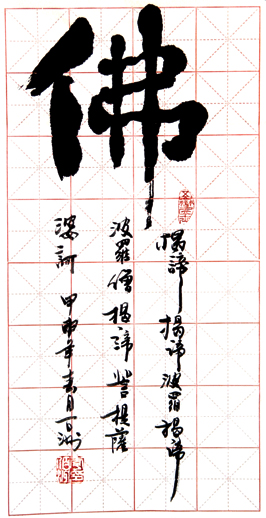 佛
揭諦揭諦波羅揭諦
波羅僧揭諦菩提薩
婆訶 甲申年春月百洲